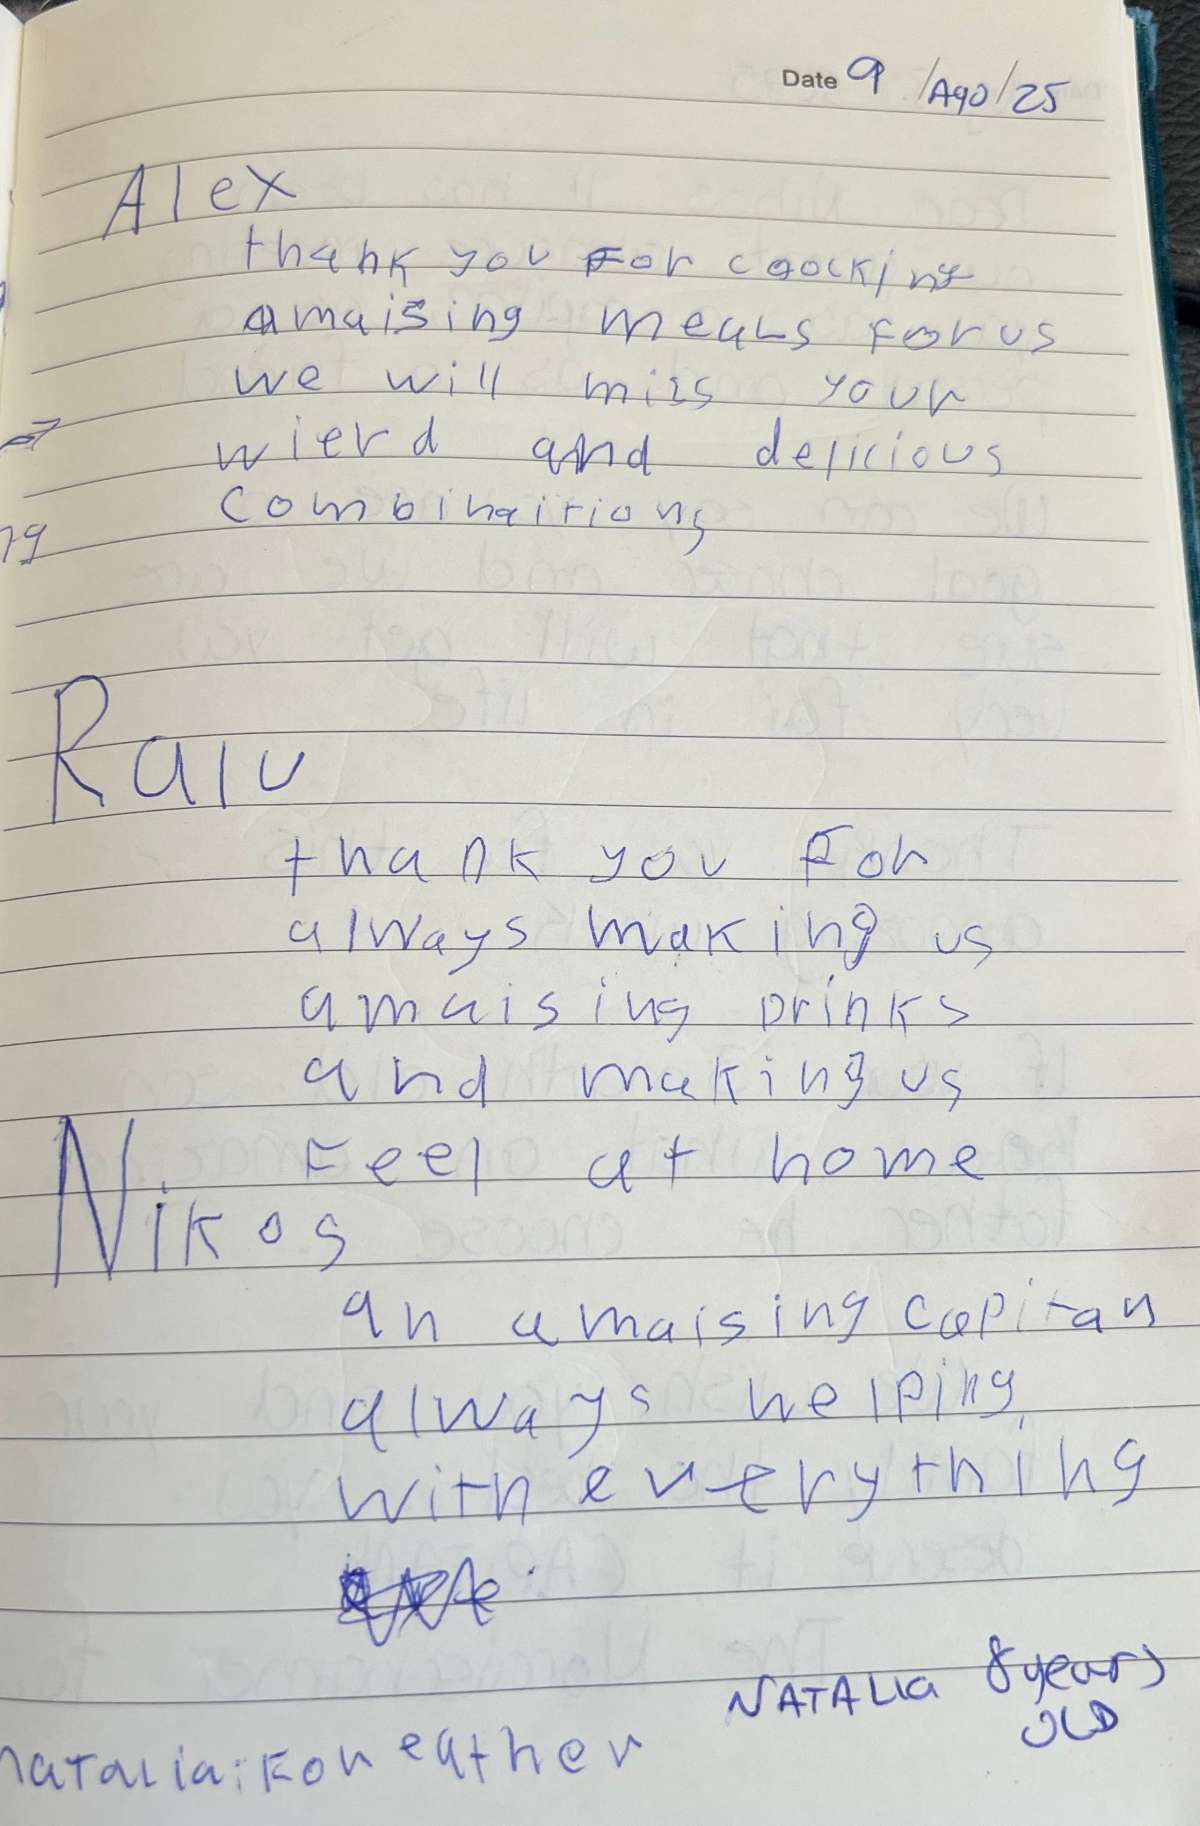 Date 9 /Ago/25
Alex
thank you For coocking
amaising meals For us
we will miss your
wierd and delicious
combinaitions
Ralu
thank you For
always making us
amaising Drinks
and making us
Feel at home
Nikos
an amaising capitan
always helping
with everything
NATALIA 8 years
OLD
natalia: For eather